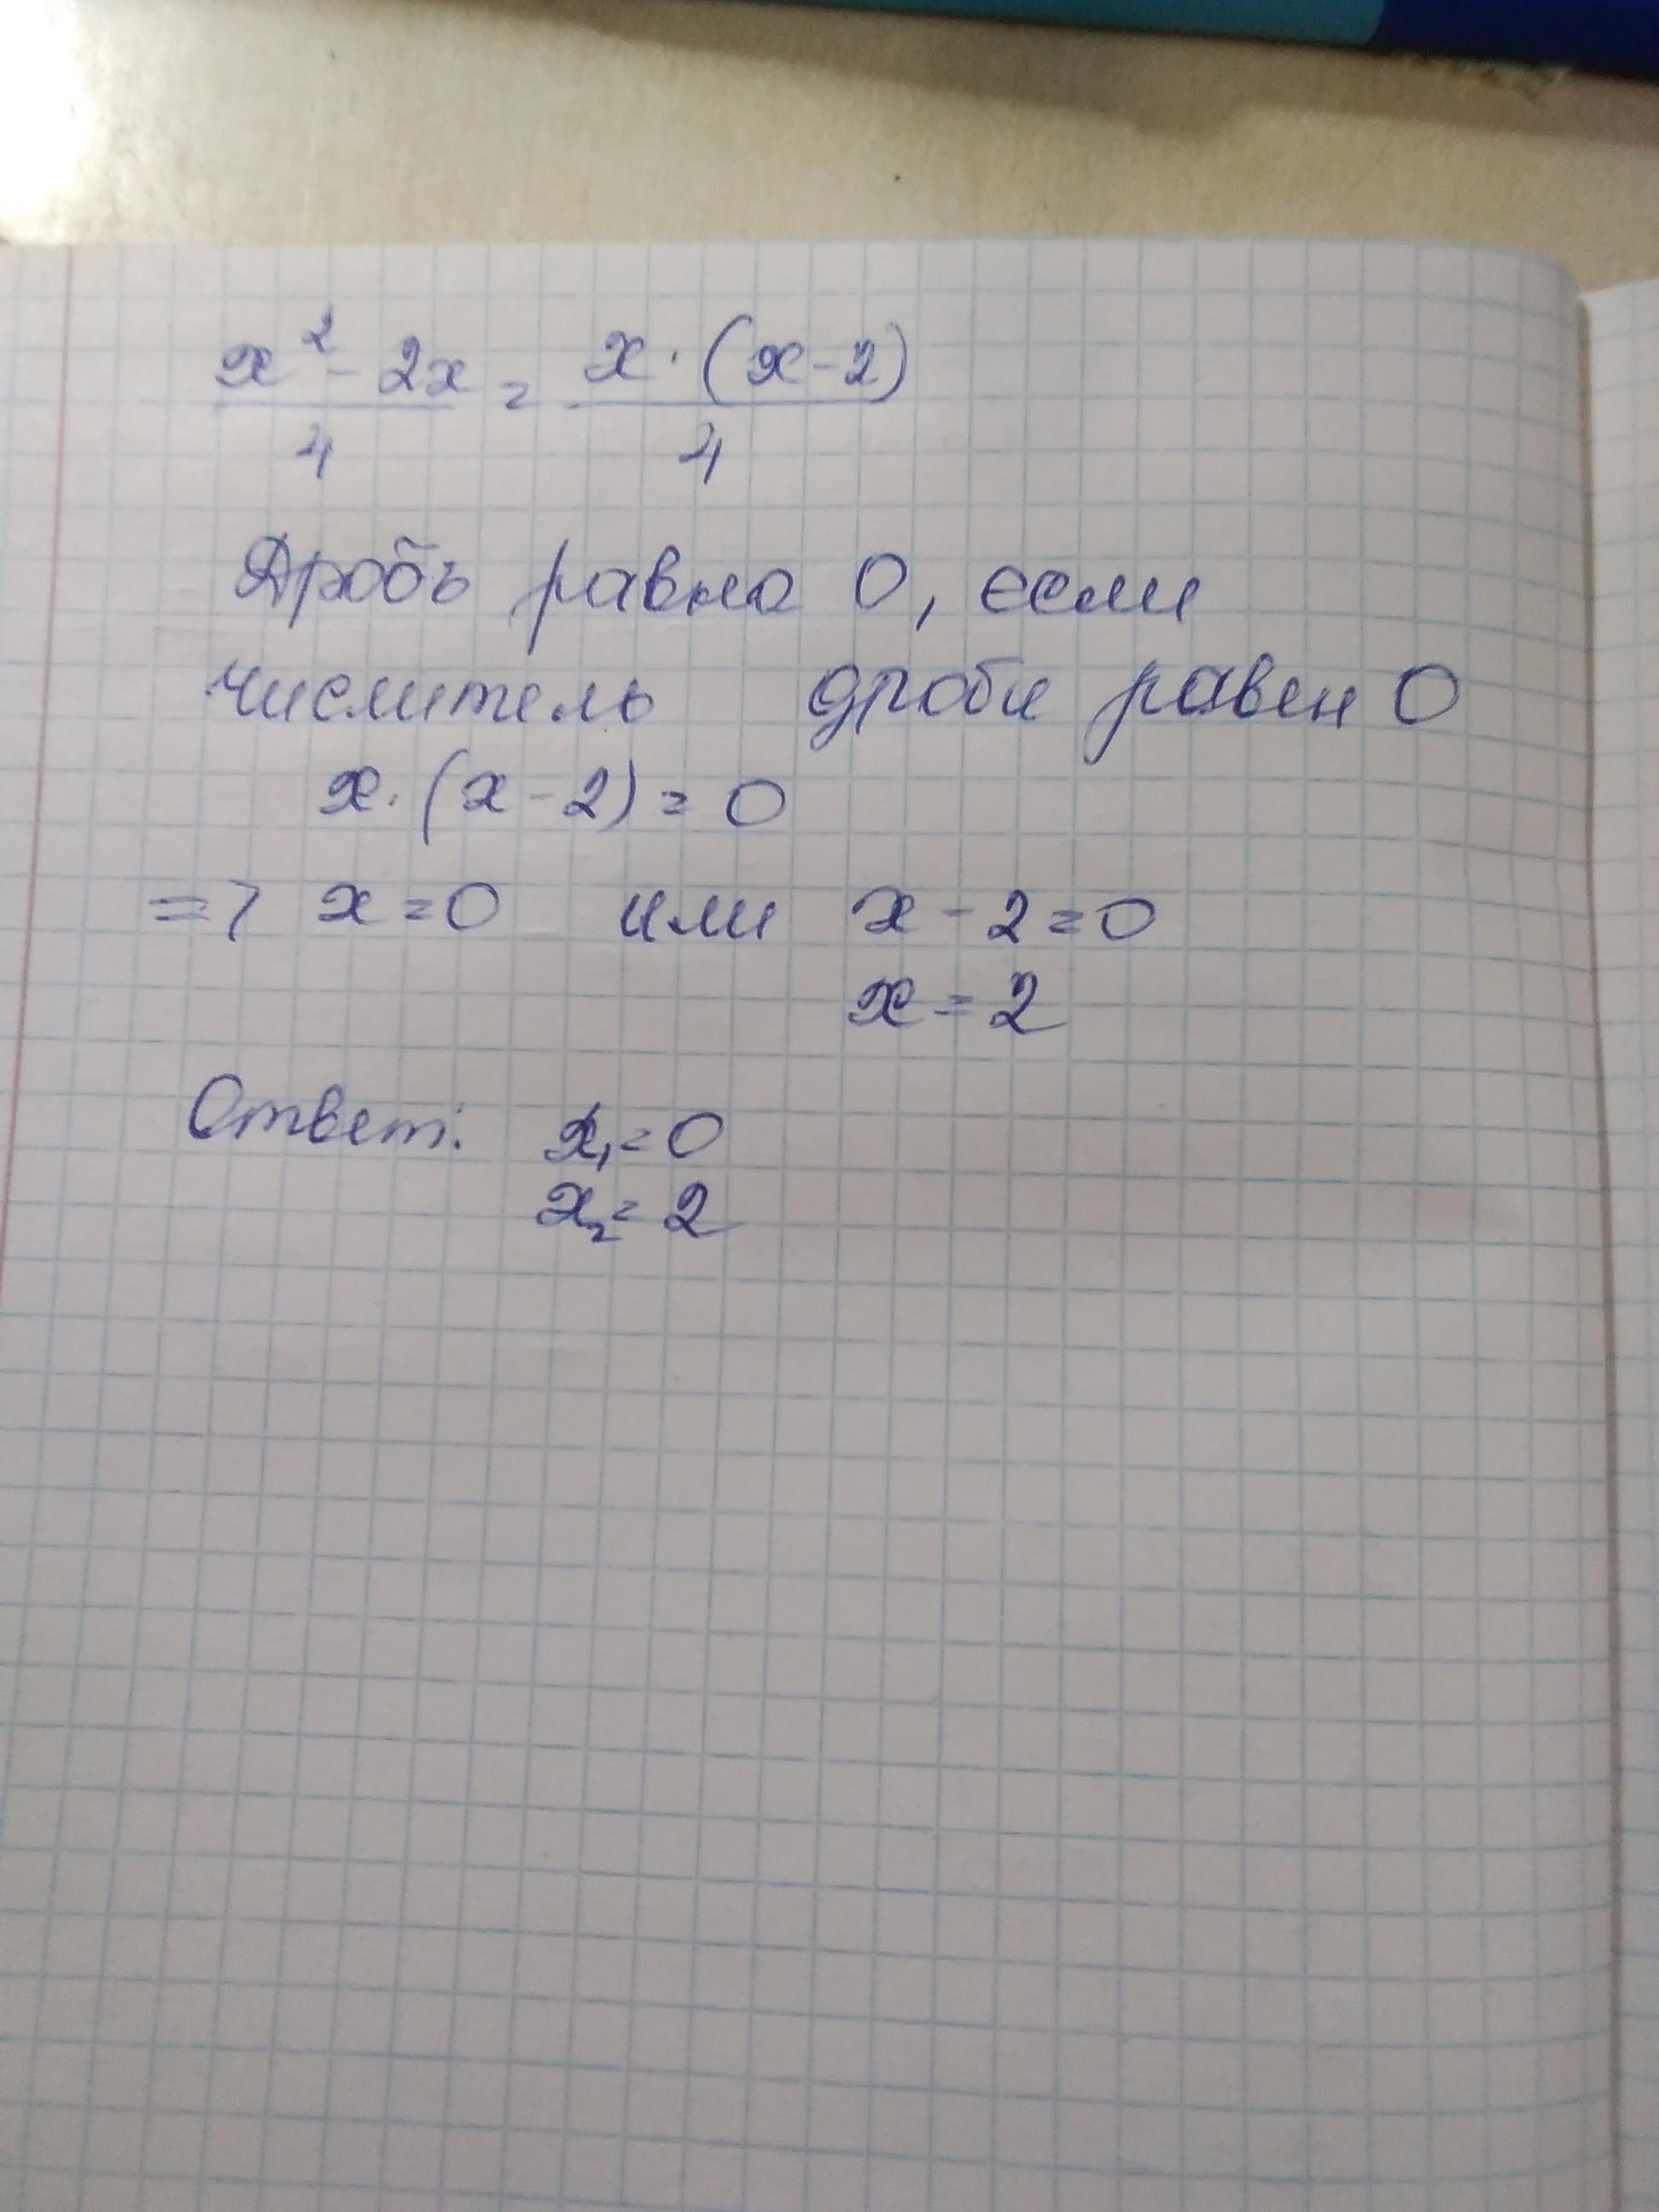 x² - 2x / 4 = x · (x - 2) / 4
Дробь равна 0, если
числитель дроби равен 0
x · (x - 2) = 0
=> x = 0 или x - 2 = 0
x = 2
Ответ: x₁ = 0
x₂ = 2